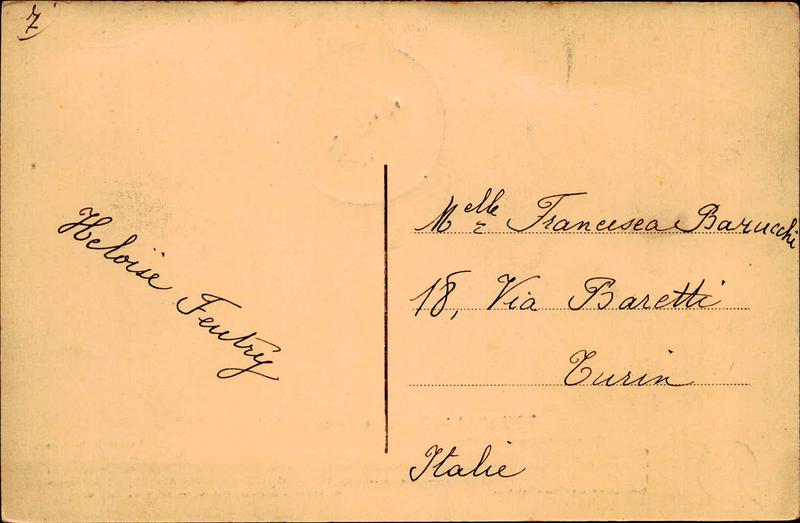 7
Heloïse Feutry
Melle Francesca Barucchi
18, Via Baretti
Turin
Italie